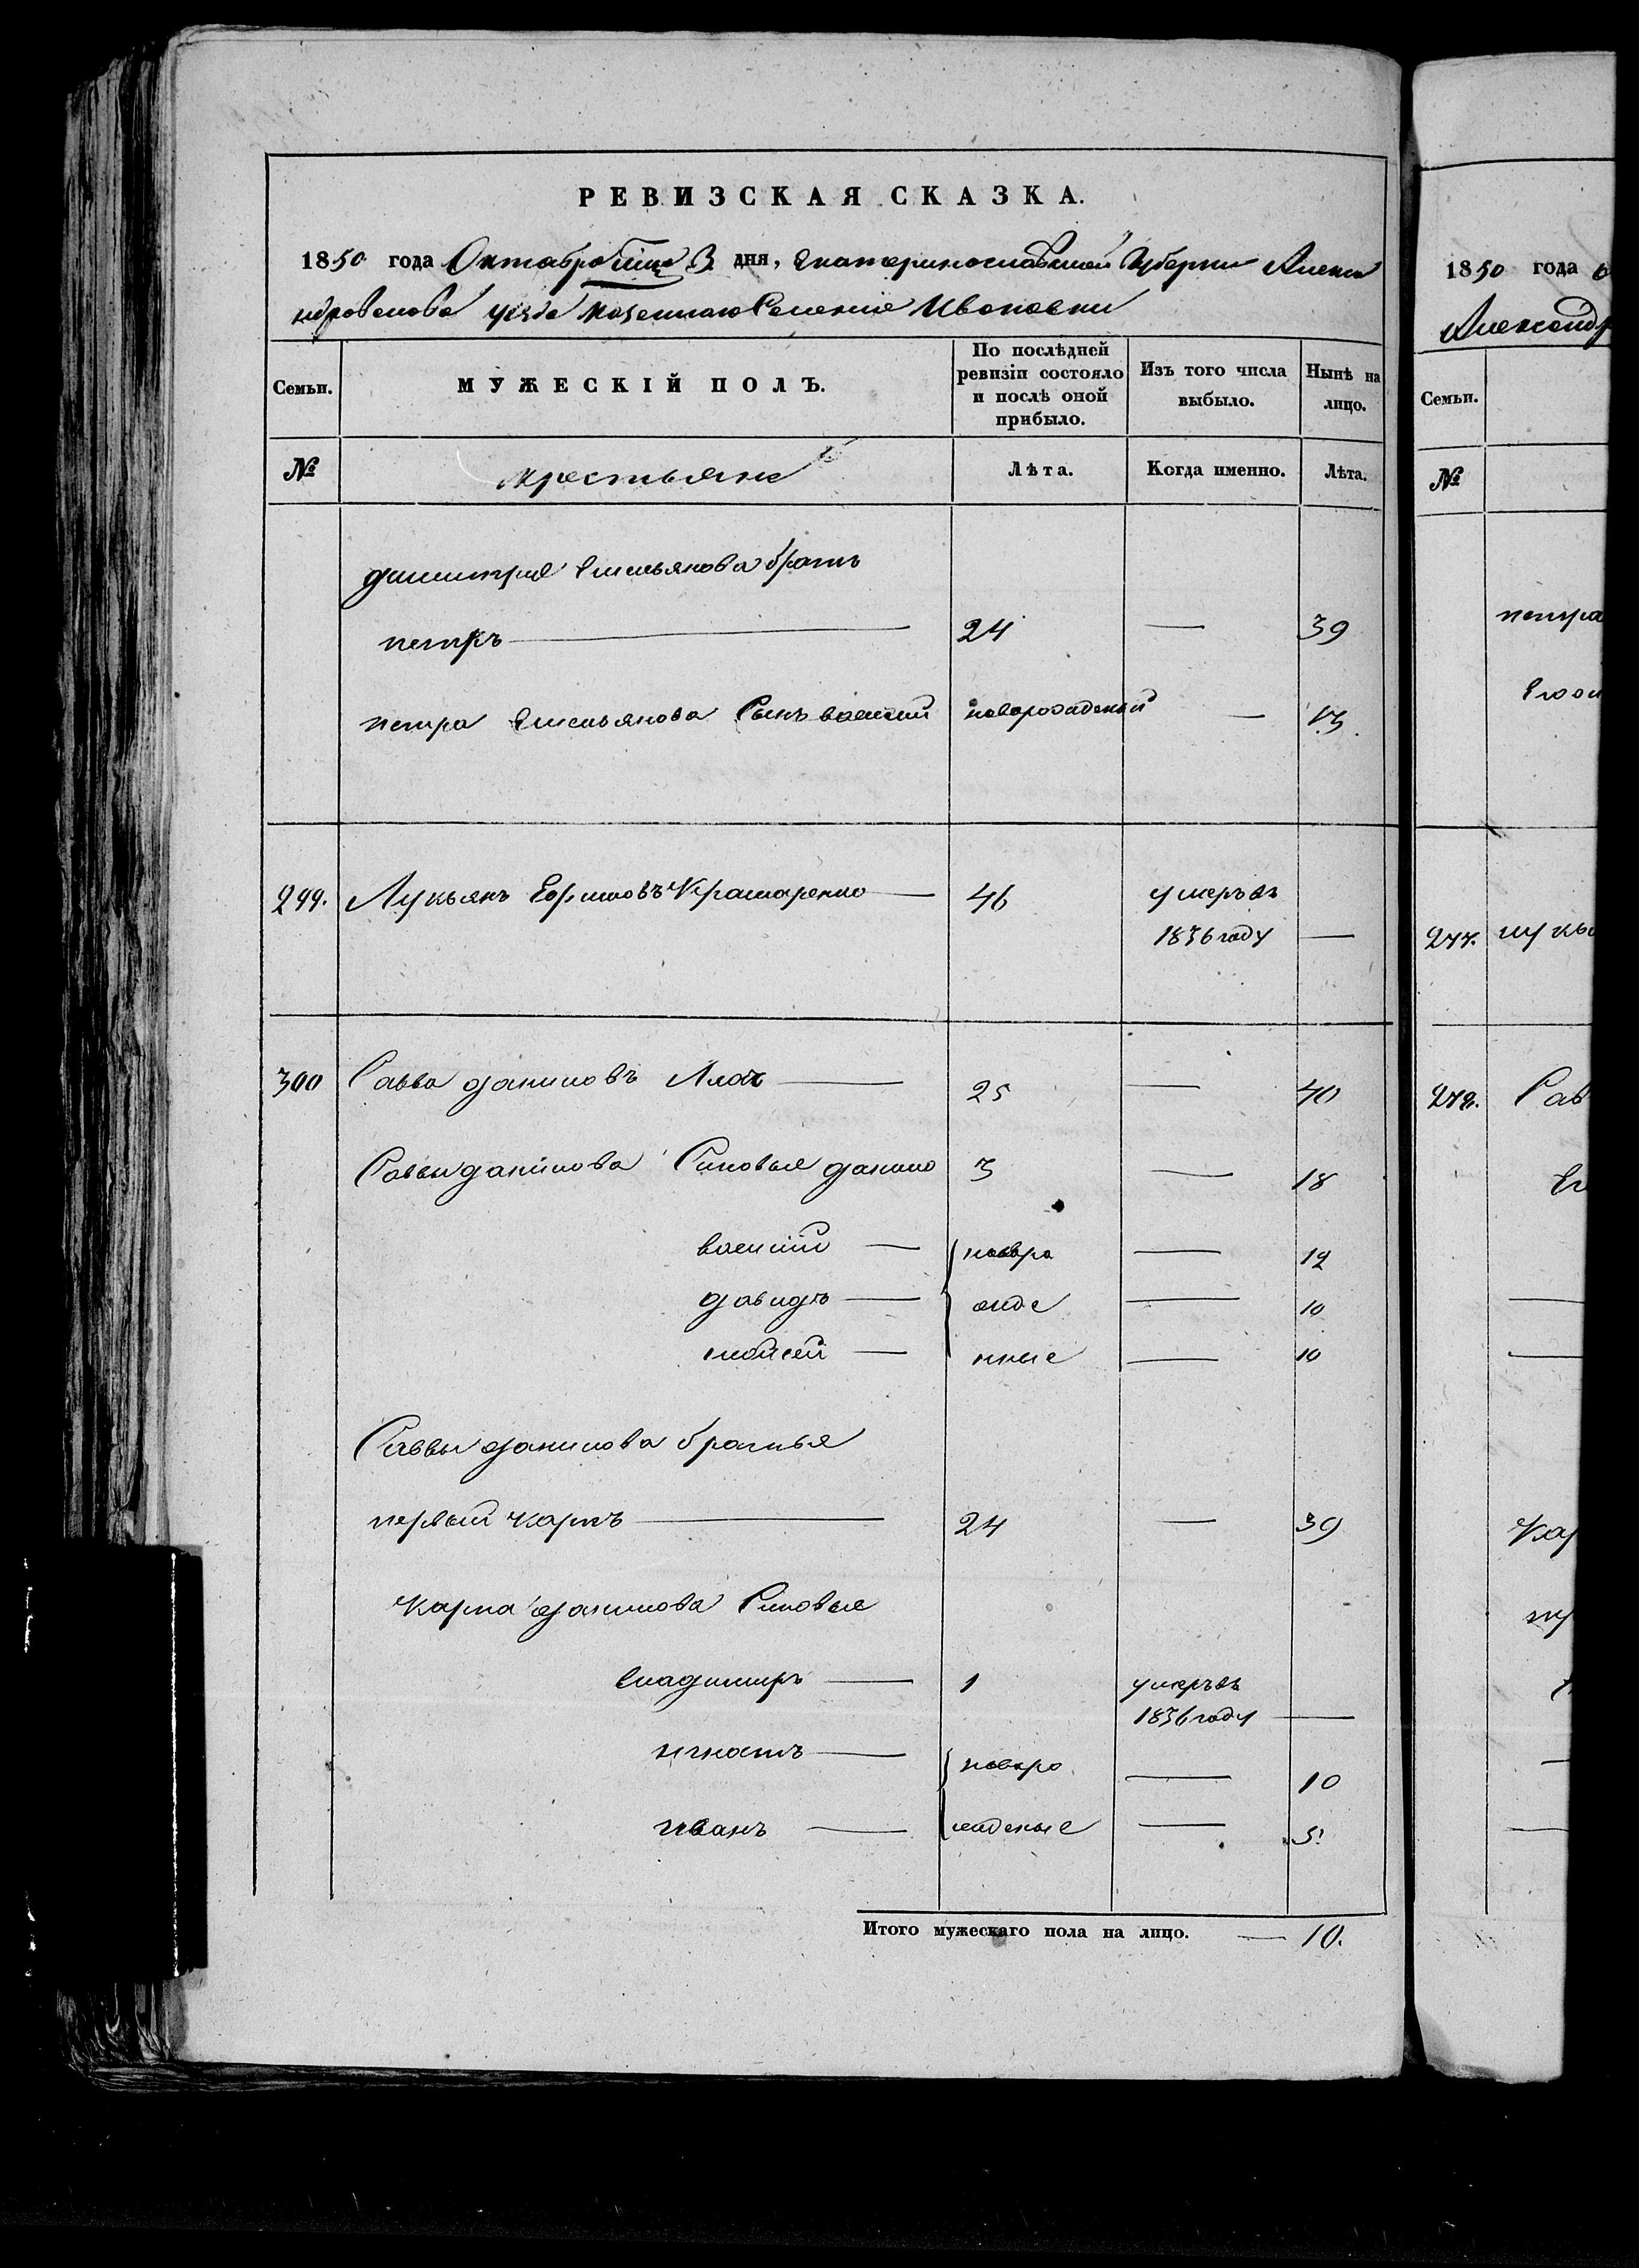 РЕВИЗСКАЯ СКАЗКА.
1850 года Октября 3 дня, Екатеринославской Губернии Алекса
ндровскова уезда казеннаго Селения Ивановки
Семьи. МУЖЕСКІЙ ПОЛЪ. По послѣдней ревизіи состояло и послѣ оной прибыло. Изъ того числа выбыло. Нынѣ на лицо.
№ крестьяне Лѣта. Когда именно. Лѣта.
димитрия Емельянова братъ
петръ — 24 — 39
петра Емельянова Сынъ василий новорожденый — 13
299. Лукьянъ Ефимовъ Крамаренко — 46 умеръ въ
1836 году —
300 Савва даниловъ — 25 — 40
Саввы данилова Синовья данило 3 — 18
василий — новоро — 12
давидъ — жде — 10
мойсей — нные — 10
Саввы данилова братья
первый карпъ — 24 — 39
карпа данилова Синовья
владимиръ — 1 умеръ въ
1836 году —
игнатъ — новоро — 10
иванъ — жденые — 5
Итого мужескаго пола на лицо. — 10.
1850 года
Александр
Семьи.
№
петра
277. лукь
278. Сав
Кар